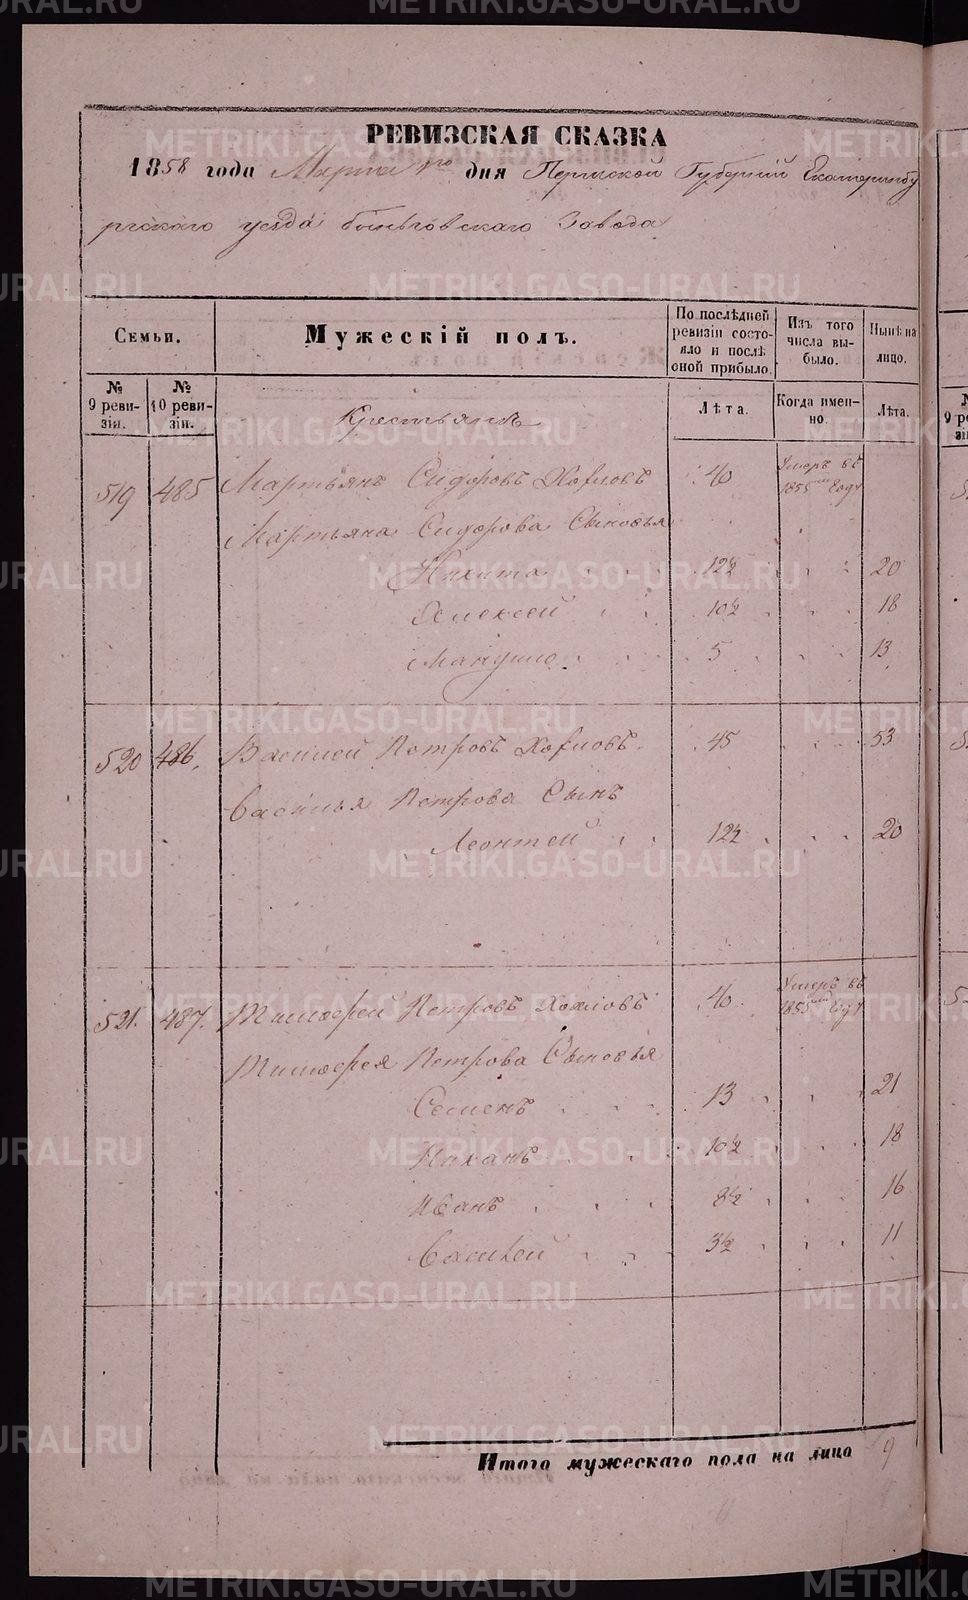 РЕВИЗСКАЯ СКАЗКА
1858 года Марта 1го дня Пермской Губернии Екатеринбу
ргскаго уезда Завода
Семьи.
Мужескій полъ.
По послѣдней ревизіи состояло и послѣ оной прибыло.
Изъ того числа выбыло.
Нынѣ на лицо.
№ 9 ревизіи.
№ 10 ревизіи.
Крестьянѣ
Лѣта.
Когда именно.
Лѣта.
519 485 Мартьянъ Сидоровъ Хохловъ 40 Умеръ въ 1855 Году
Мартьяна Сидорова Сыновья
Никита 12½ 20
Алексей 10½ 18
5 13
520 486. Василей Петровъ Хохловъ. 45 53
Василья Петрова Сынъ
Леонтей 12½ 20
521. 487. Тимофей Петровъ Хохловъ 40 Умеръ въ 1855 Году
Тимофея Петрова Сыновья
Семенъ 13 21
10½ 18
Иванъ 8½ 16
Василей 3½ 11
Итого мужескаго пола на лицо 9
METRIKI.GASO-URAL.RU